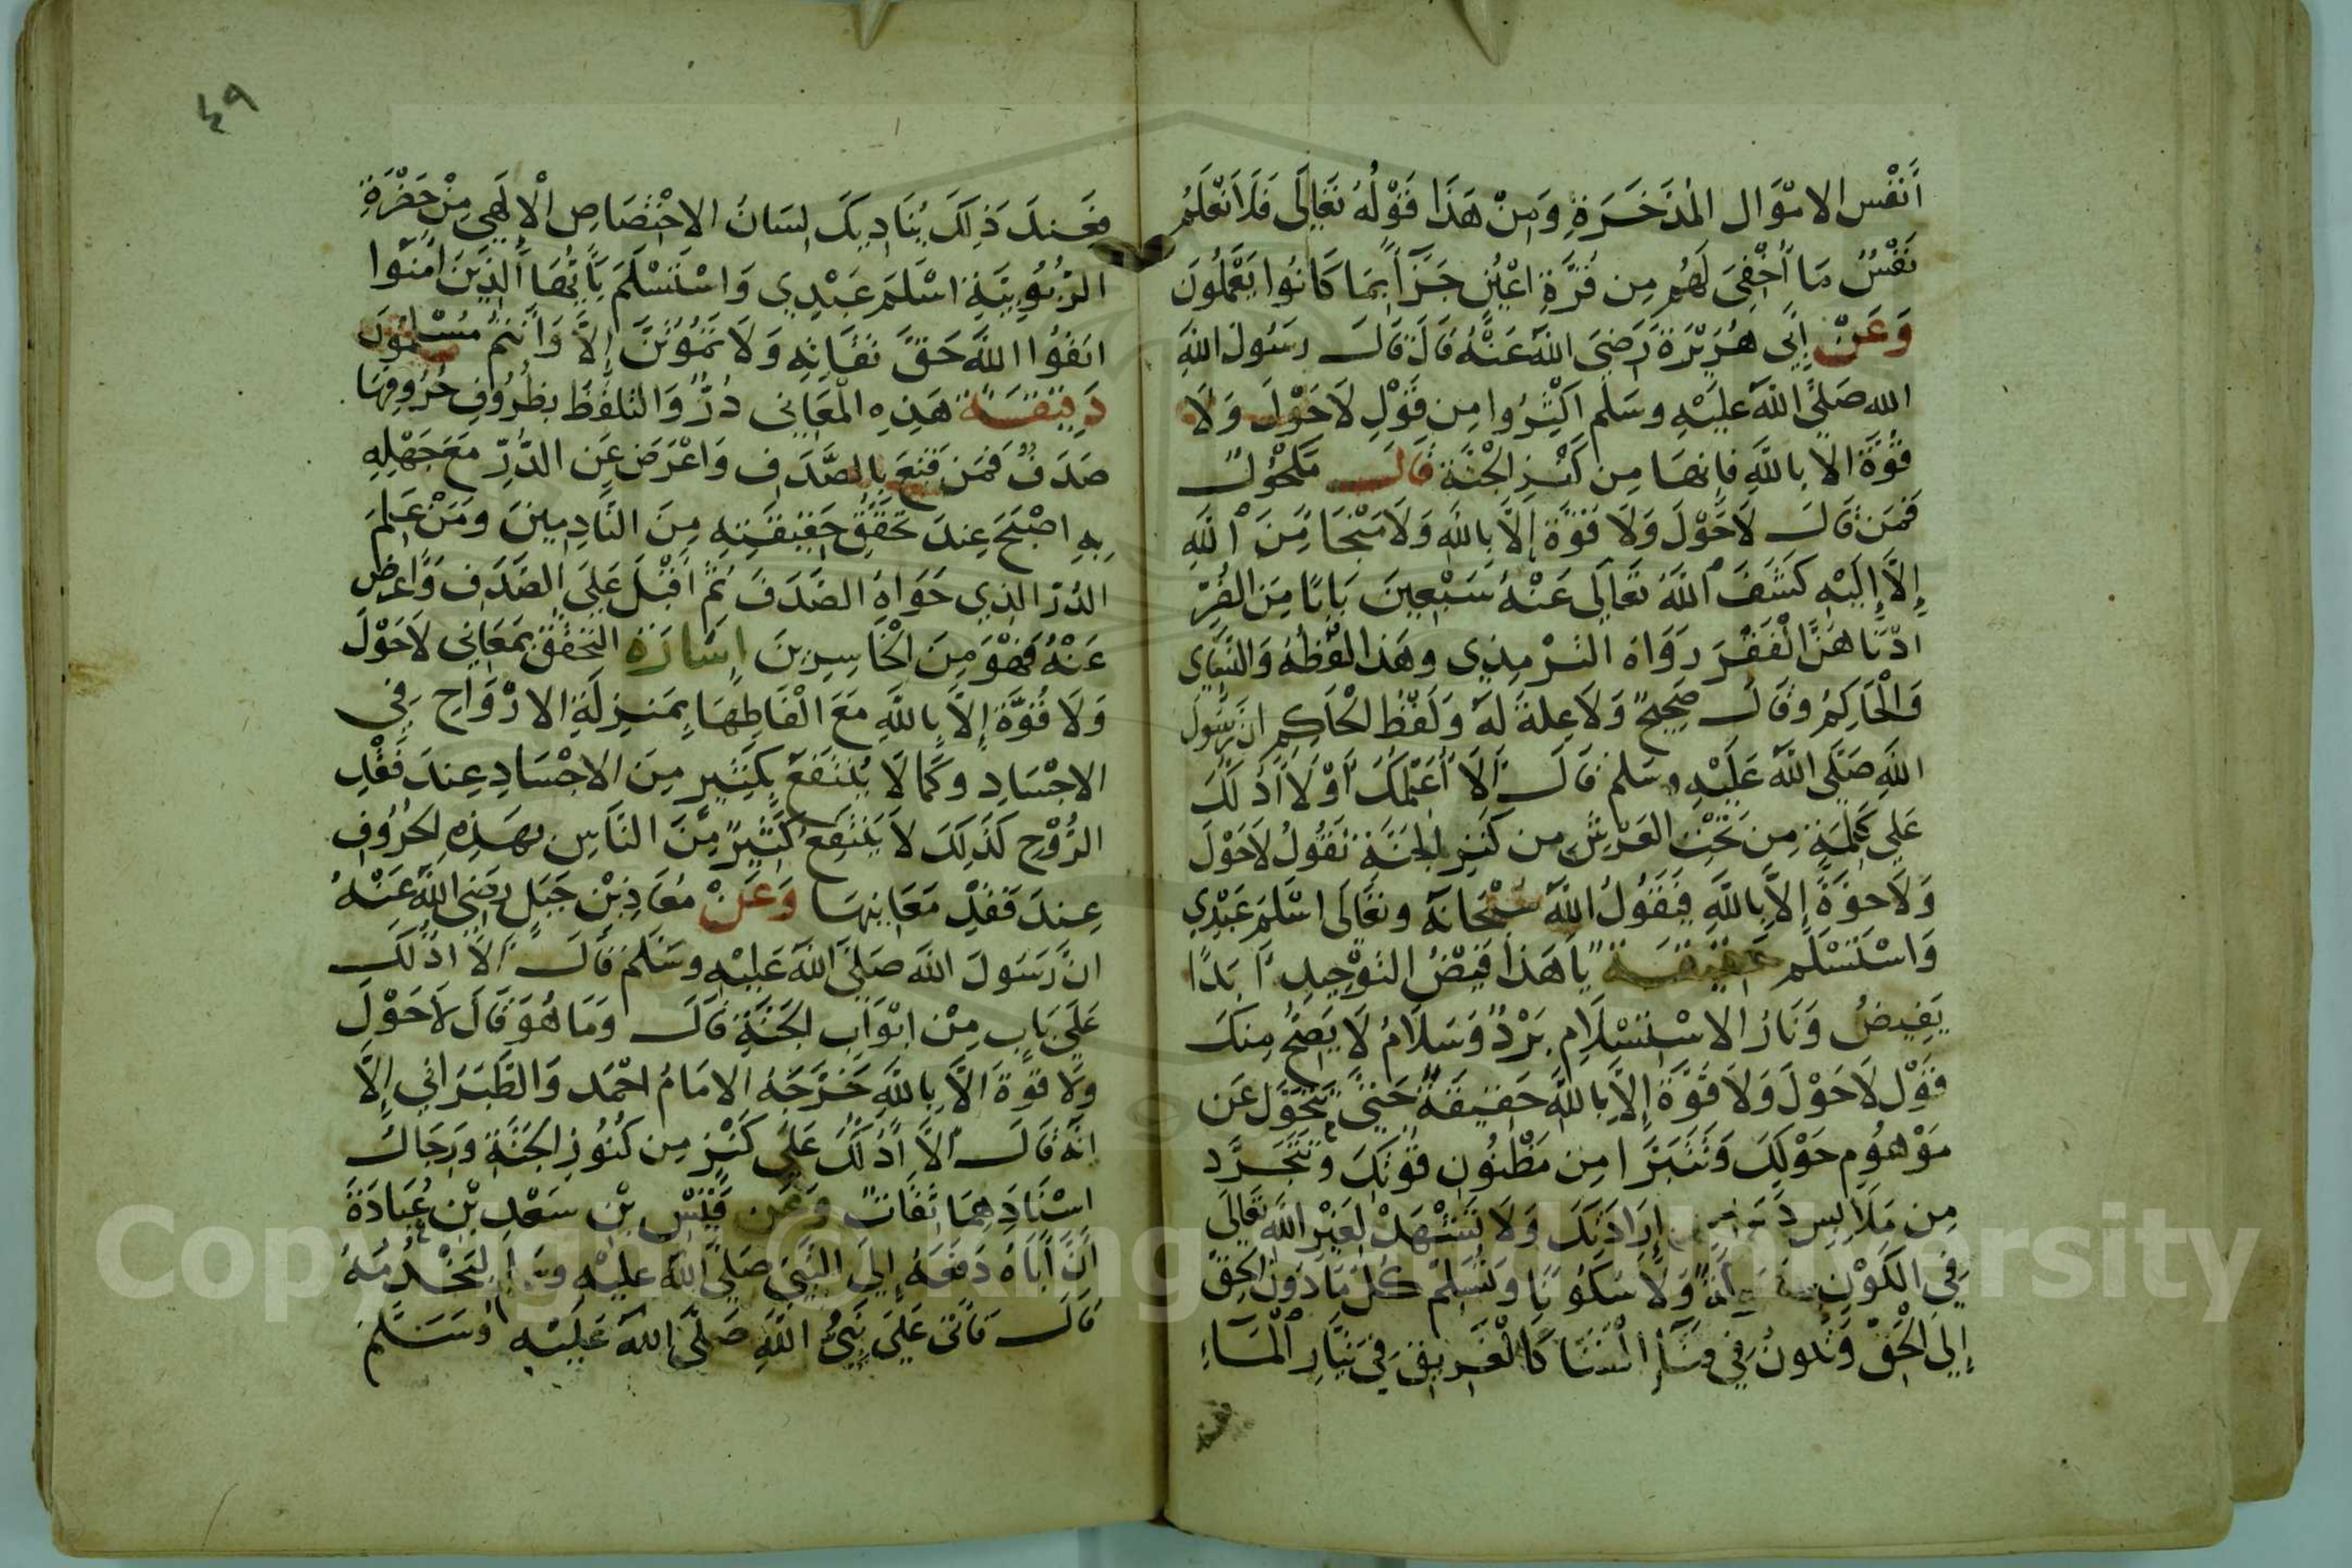 أَنْفُس الامْوَال المُدَّخَرَةِ وَمِنْ هَذَا قَوْلُهُ تَعَالَى فَلَا تَعْلَمُ
نَفْسٌ مَا أُخْفِيَ لَهُم مِن قُرَّةِ اعْيُنٍ جَزَآءً بِمَا كَانُوا يَعْمَلُونَ
وَعَنْ ابِي هُرَيْرَةَ رَضِيَ اللَّهُ عَنْهُ قَالَ قَالَ رسَولُ اللَّهِ
الله صَلَّى اللَّهُ عَلَيْهِ وسَلم اكْثِرُوا مِن قَوْلِ لَاحَوْلَ وَلَا
قُوَّةَ الا بِاللَّهِ فانهَا مِن كَنْزِ الْجَنَّةِ قَالَ مَكحُولٌ
فَمَن قَالَ لَاحَوْلَ وَلَا قوَّةَ إِلَّا بِاللَّهِ وَلَا مَنْجَا مِنَ اللَّهِ
إِلَّا إِلَيْهِ كَشَفَ اللَّهُ تَعَالَى عَنْهُ سَبْعِينَ بَابًا مِنَ الضُّرِّ
ادْنَاهُنَّ الْفَقْرَ رَوَاهُ التِرْمِذِي وهَذا لفْظهُ وَالنَّسَاي
وَالْحَاكِمُ وقَالَ صَحِيحٌ وَلَا عِلةَ لَهُ وَلَفْظُ الحَاكِمِ انَّ رَسُولَ
اللَّهِ صَلَّى اللَّهُ عَلَيْهِ وسَلم قَالَ أَلَا أُعَلِّمُكَ أَوْ لَا أَدُلُّكَ
عَلى كَلِمَةٍ مِن تَحْتِ العَرْشِ من كَنْزِ الجَنَّةِ تَقُولُ لَاحَوْلَ
وَلَا قُوَّةَ إِلَّا بِاللَّهِ فَيَقُولُ اللَّهُ سُبْحَانَهُ وتَعَالَى اسْلَمَ عَبْدِي
وَاسْتَسْلَمَ حَقِيقَة يَا هَذَا فَيْضُ التَوْحِيدِ أَبَدًا
يَفِيضُ وَنَارُ الاسْتِسْلَامِ بَرْدٌ وَسَلَامٌ لَا يَصِحُّ مِنكَ
قَوْل لَاحَوْلَ وَلَا قُوَّةَ إِلَّا بِاللَّهِ حَقِيقَةً حَتَّى تَتَحَوَّلَ عَن
مَوْهُومِ حَوْلِكَ وَتَتَبَرَّا مِن مَظْنُونِ قُوتِكَ وتَتَجَرَّد
مِن مَلَابِسِ إِرَادَتِكَ وَلَا تَشْهَدْ لِغَيْرِ اللَّهِ تَعَالَى
فِي الكَوْنِ وَلَا سُكُونًا وَتُسَلِّمْ كُلَّ مَا دُونَ الْحَقِّ
إِلَى الْحَقِّ وَتكُونُ فِي كَالْغَرِيقِ فِي تَيَّارِ الْمَآءِ
فَعِندَ ذَلِكَ يُنَادِيكَ لِسَانُ الاخْتِصَاصِ الْإِلَهِي مِنْ حَضْرَةِ
الرُّبُوبِيَّةِ اسْلَمَ عَبْدِي وَاسْتَسْلَمَ يَا أَيُّهَا الَّذِينَ آمَنُوا
اتَقُوا اللَّهَ حَقَّ تقَاتِهِ وَلَا تَمُوتُنَّ إِلَّا وَأَنتُمْ مُسْلِمُونَ
دَقِيقَة هَذِهِ الْمَعَانِي دُرٌّ وَالتلَفُّظُ بِظُرُوفِ حُرُوفِهَا
صَدَفٌ فَمَن قَنِعَ بِالصَّدَفِ وَاعْرَضَ عَنِ الدُّرِّ مَعَ جَهْلِهِ
بِهِ اصْبَحَ عِندَ تَحَقُّقِ حَقِيقَتِهِ مِنَ النَّادِمِينَ وَمَنْ عَلِمَ
الدُرَّ الذِي حَوَاهُ الصَّدَفَ ثُمَّ اقْبَلَ عَلَى الصَّدَفِ وَاعرَض
عَنْهُ فَهْوَ مِنَ الْخَاسِرِينَ إِشَارَة التَحَقُّقُ بمَعَانِي لَاحَوْلَ
وَلَا قُوَّةَ إِلَّا بِاللَّهِ مَعَ الْفَاظِهَا بِمَنِزِلَةِ الارْوَاحِ فِي
الاجْسَادِ وكَمَا لَا يُنْتَفَعُ بِكَثِيرٍ مِنَ الاجْسَادِ عِندَ فَقْدِ
الرُّوْحِ كَذَلِكَ لَا يَنْتَفِعُ كَثِيرٌ مِّنَ النَّاسِ بهَذِهِ الحُرُوفِ
عِندَ فَقْدِ مَعَانِيهَا وَعَنْ مُعَاذِ بْنِ جَبَلٍ رَضِيَ اللَّهُ عَنْهُ
انَّ رَسَولَ اللَّهِ صَلَّى اللَّهُ عَلَيْهِ وسَلمَ قَالَ أَلَا ادُلُّكَ
عَلَى بَابٍ مِنْ ابْوَابِ الجَنَّةِ قَالَ وَمَا هُوَ قَالَ لَاحَوْلَ
ولَا قوةَ الَّا بِاللَّهِ خَرَّجَهُ الامَامُ احْمَد وَالطَّبَرَانِي إِلَّا
انَّهُ قَالَ أَلَا أَدُلُّكَ عَلَى كَنْزٍ مِن كُنُوزِ الجَنَّةِ وَرِجَالُ
اسْنَادِهِمَا ثِقَاتٌ وَعَن قَيْسِ بْنِ سَعْدِ بْنِ عُبَادَةَ
أَنَّ أَبَاهُ دَفَعَهُ إِلَى النَّبِيِّ صَلَّى اللَّهُ عَليْهِ وسَلم لِيَخْدُمَهُ
قَالَ فَاتَى عَلَيَّ نَبِيُّ اللَّهِ صَلَّى اللَّهُ عَلَيْهِ وَسَلَّمَ
٤٩
Copyright © King Saud University